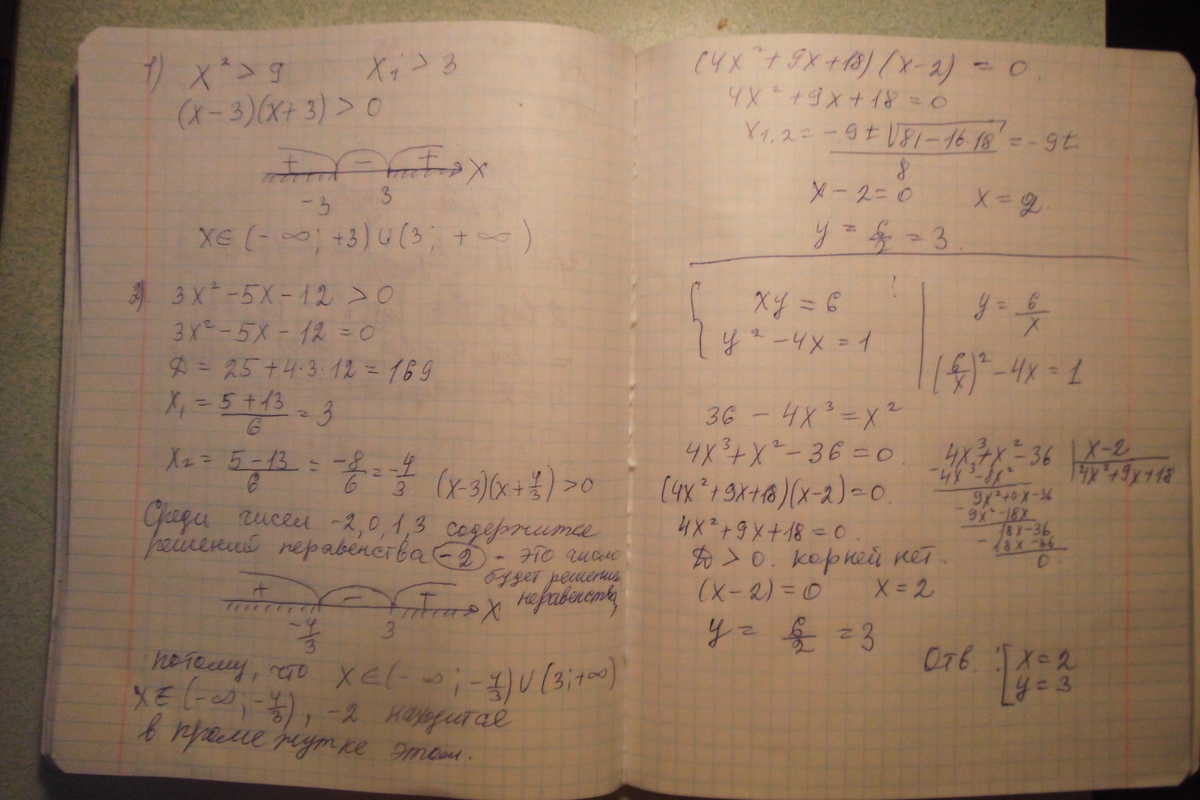 1) x² > 9 x₁ > 3
(x-3)(x+3) > 0
+ - + x
-3 3
x∈(-∞; +3)∪(3; +∞)
2) 3x² - 5x - 12 > 0
3x² - 5x - 12 = 0
D = 25 + 4·3·12 = 169
x₁ = (5+13)/6 = 3
x₂ = (5-13)/6 = -8/6 = -4/3 (x-3)(x+4/3) > 0
Среди чисел -2, 0, 1, 3 содержится
решений неравенства -2 - это число
будет решение
неравенства,
+ - + x
-4/3 3
потому, что x∈(-∞; -4/3)∪(3; +∞)
x∈(-∞; -4/3), -2 находится
в промежутке этом.
(4x² + 9x + 18)(x-2) = 0.
4x² + 9x + 18 = 0
x₁,₂ = (-9±√(81-16·18))/8 = -9±
x - 2 = 0 x = 2.
y = 6/2 = 3.
{ xy = 6 | y = 6/x
y² - 4x = 1 | (6/x)² - 4x = 1
36 - 4x³ = x²
4x³ + x² - 36 = 0. 4x³ + x² - 36 | x-2
-4x³ - 8x² 4x² + 9x + 18
9x² + 0·x - 36
-9x² - 18x
18x - 36
-18x - 36
0
(4x² + 9x + 18)(x-2) = 0.
4x² + 9x + 18 = 0.
D > 0. корней нет.
(x-2) = 0 x = 2
y = 6/2 = 3
Отв. : [ x = 2
y = 3